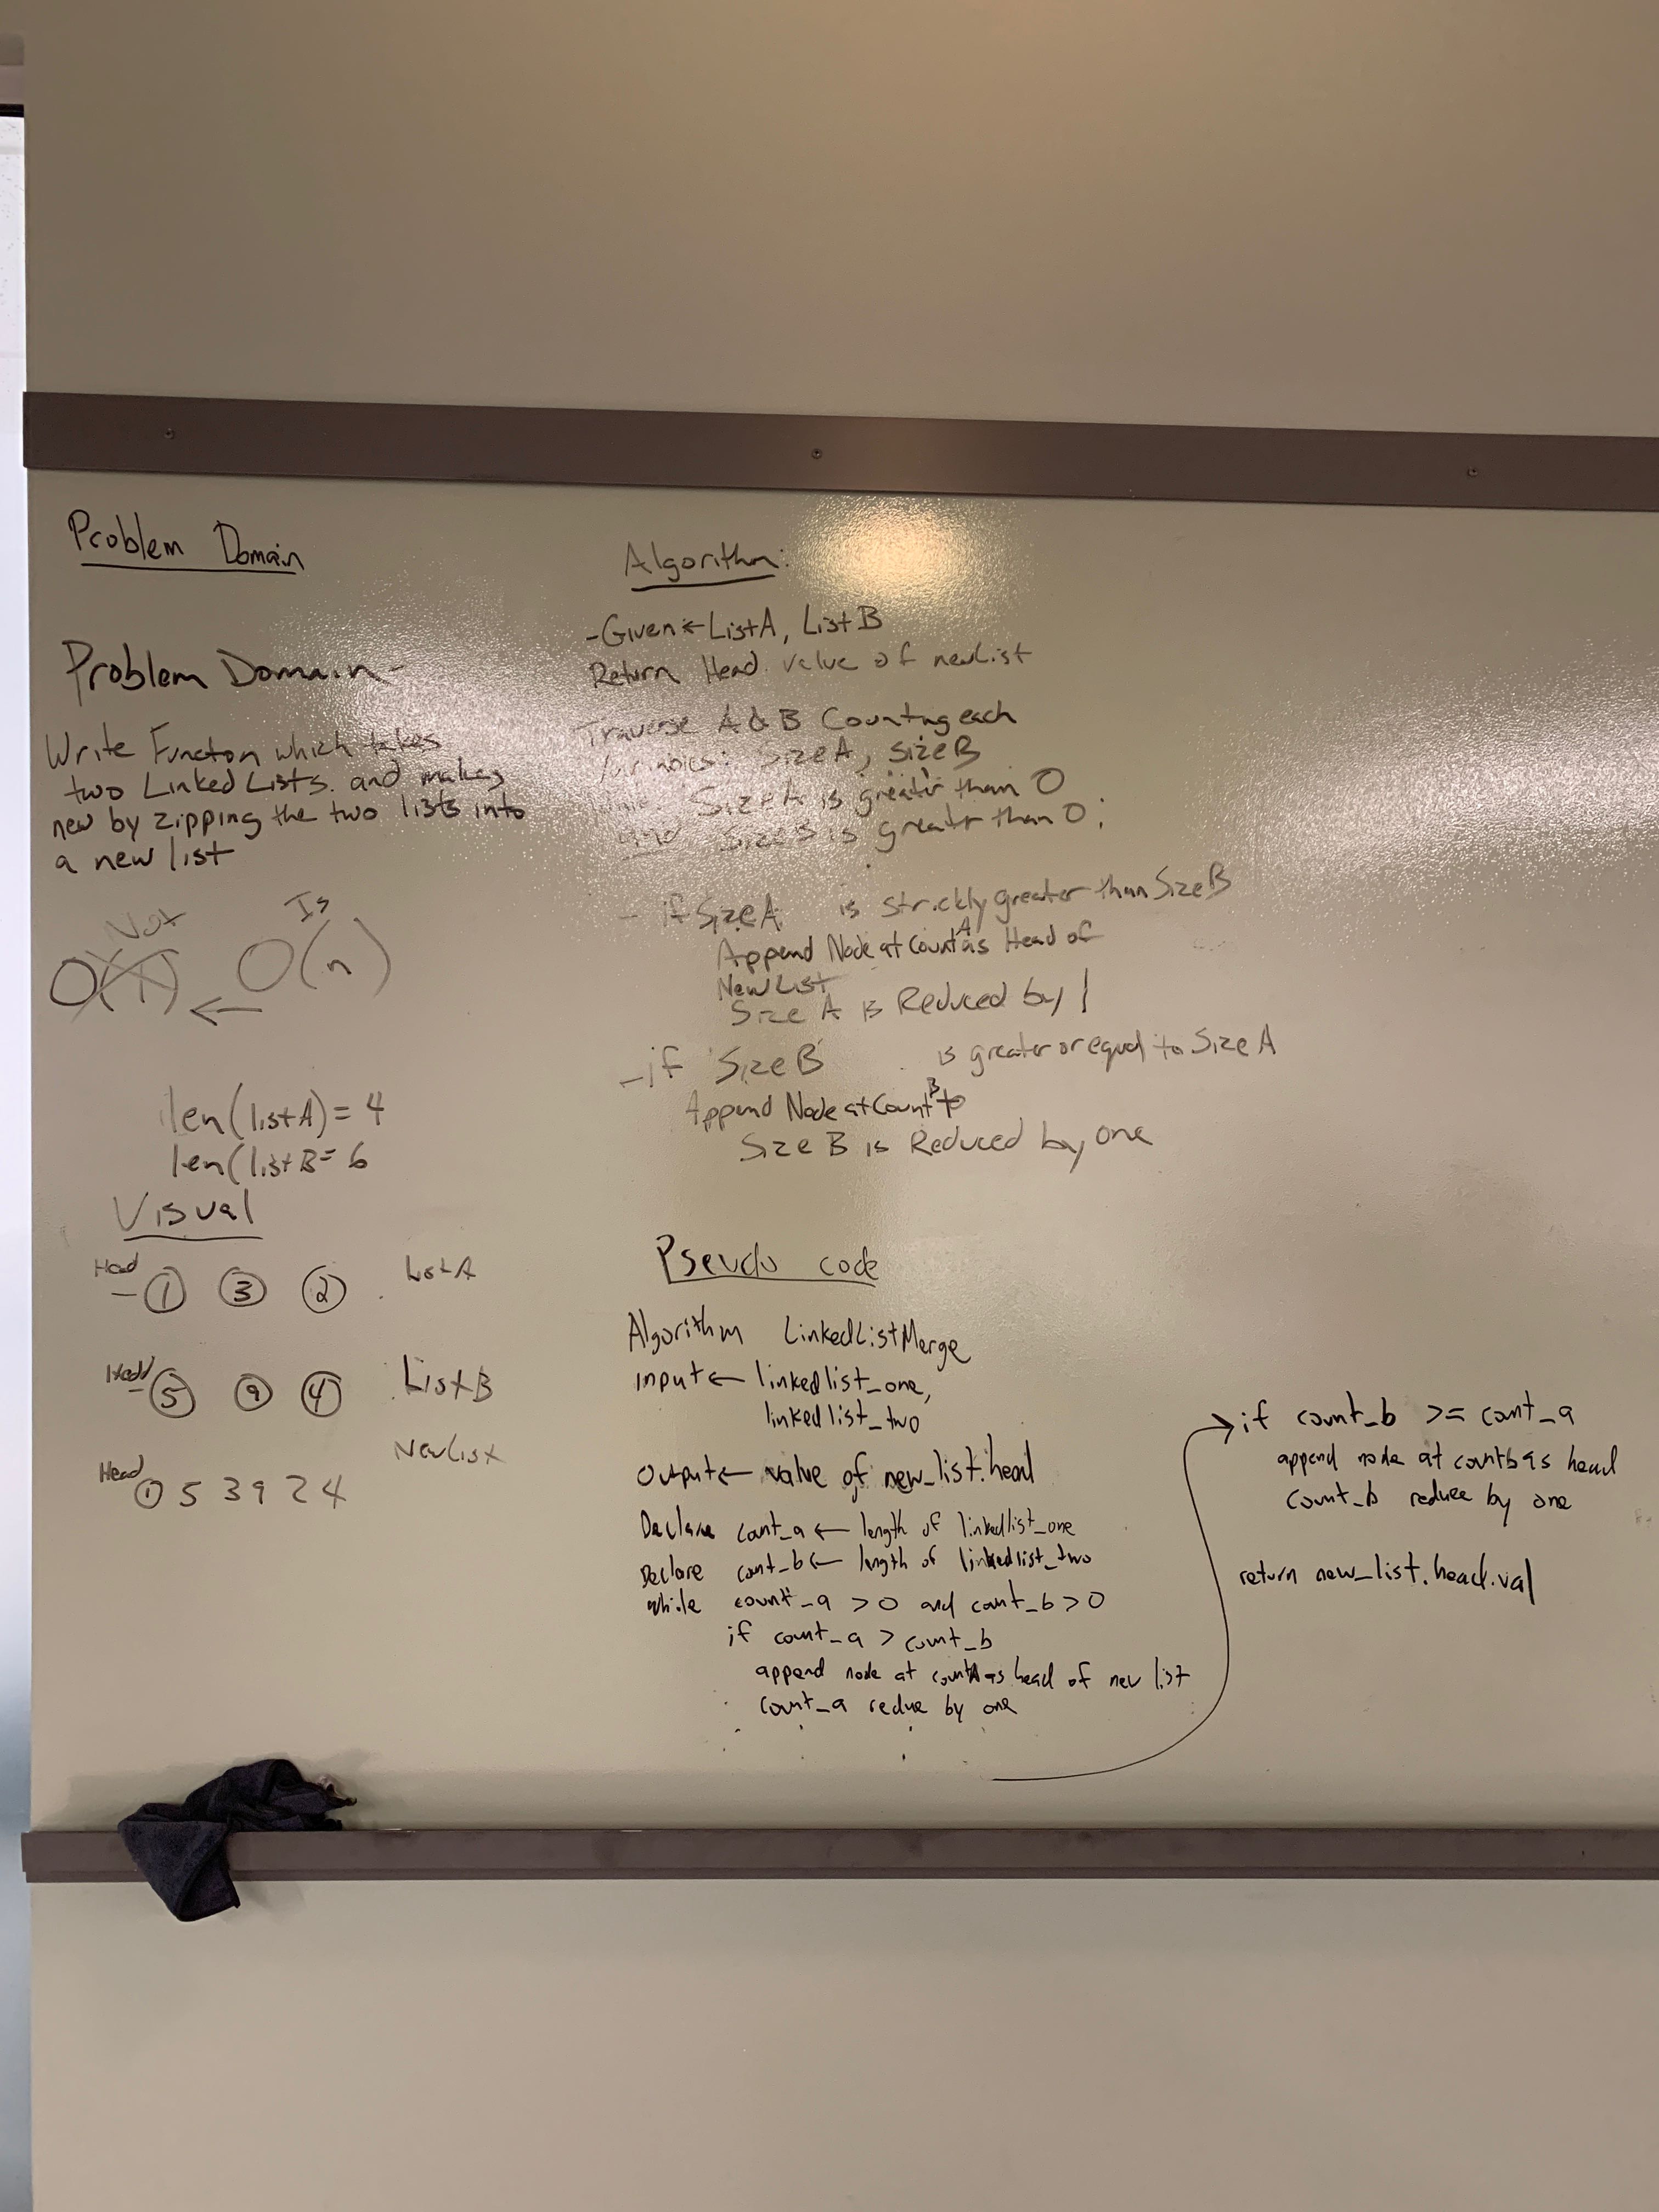 Problem Domain
Problem Domain-
Write Functon which takes
two Linked Lists. and makes
new by zipping the two lists into
a new list
Not Is
O(1) ← O(n)
len(listA)=4
len(listB=6
Visual
Head
- 1 3 2 ListA
Head
- 5 9 4 ListB
NewList
Head
1 5 3 9 2 4
Algorithm:
-Given← ListA, ListB
Return Head value of newList
Traverse A & B Counting each
Variables: SizeA, sizeB
SizeA is greater than 0
and SizeB is greater than 0:
- if SizeA is strickly greater than SizeB
Append Node at CountA as Head of
NewList
Size A is Reduced by 1
-if SizeB is greater or equal to Size A
Append Node at CountB to
Size B is Reduced by one
Pseudo code
Algorithm LinkedListMerge
input← linkedlist_one,
linkedlist_two
Output← value of new_list.head
Declare count_a ← length of linkedlist_one
Declare count_b ← length of linkedlist_two
while count_a > 0 and count_b > 0
if count_a > count_b
append node at countA as head of new list
count_a redue by one
→ if count_b >= count_a
append node at countb as head
count_b reduce by one
return new_list.head.val